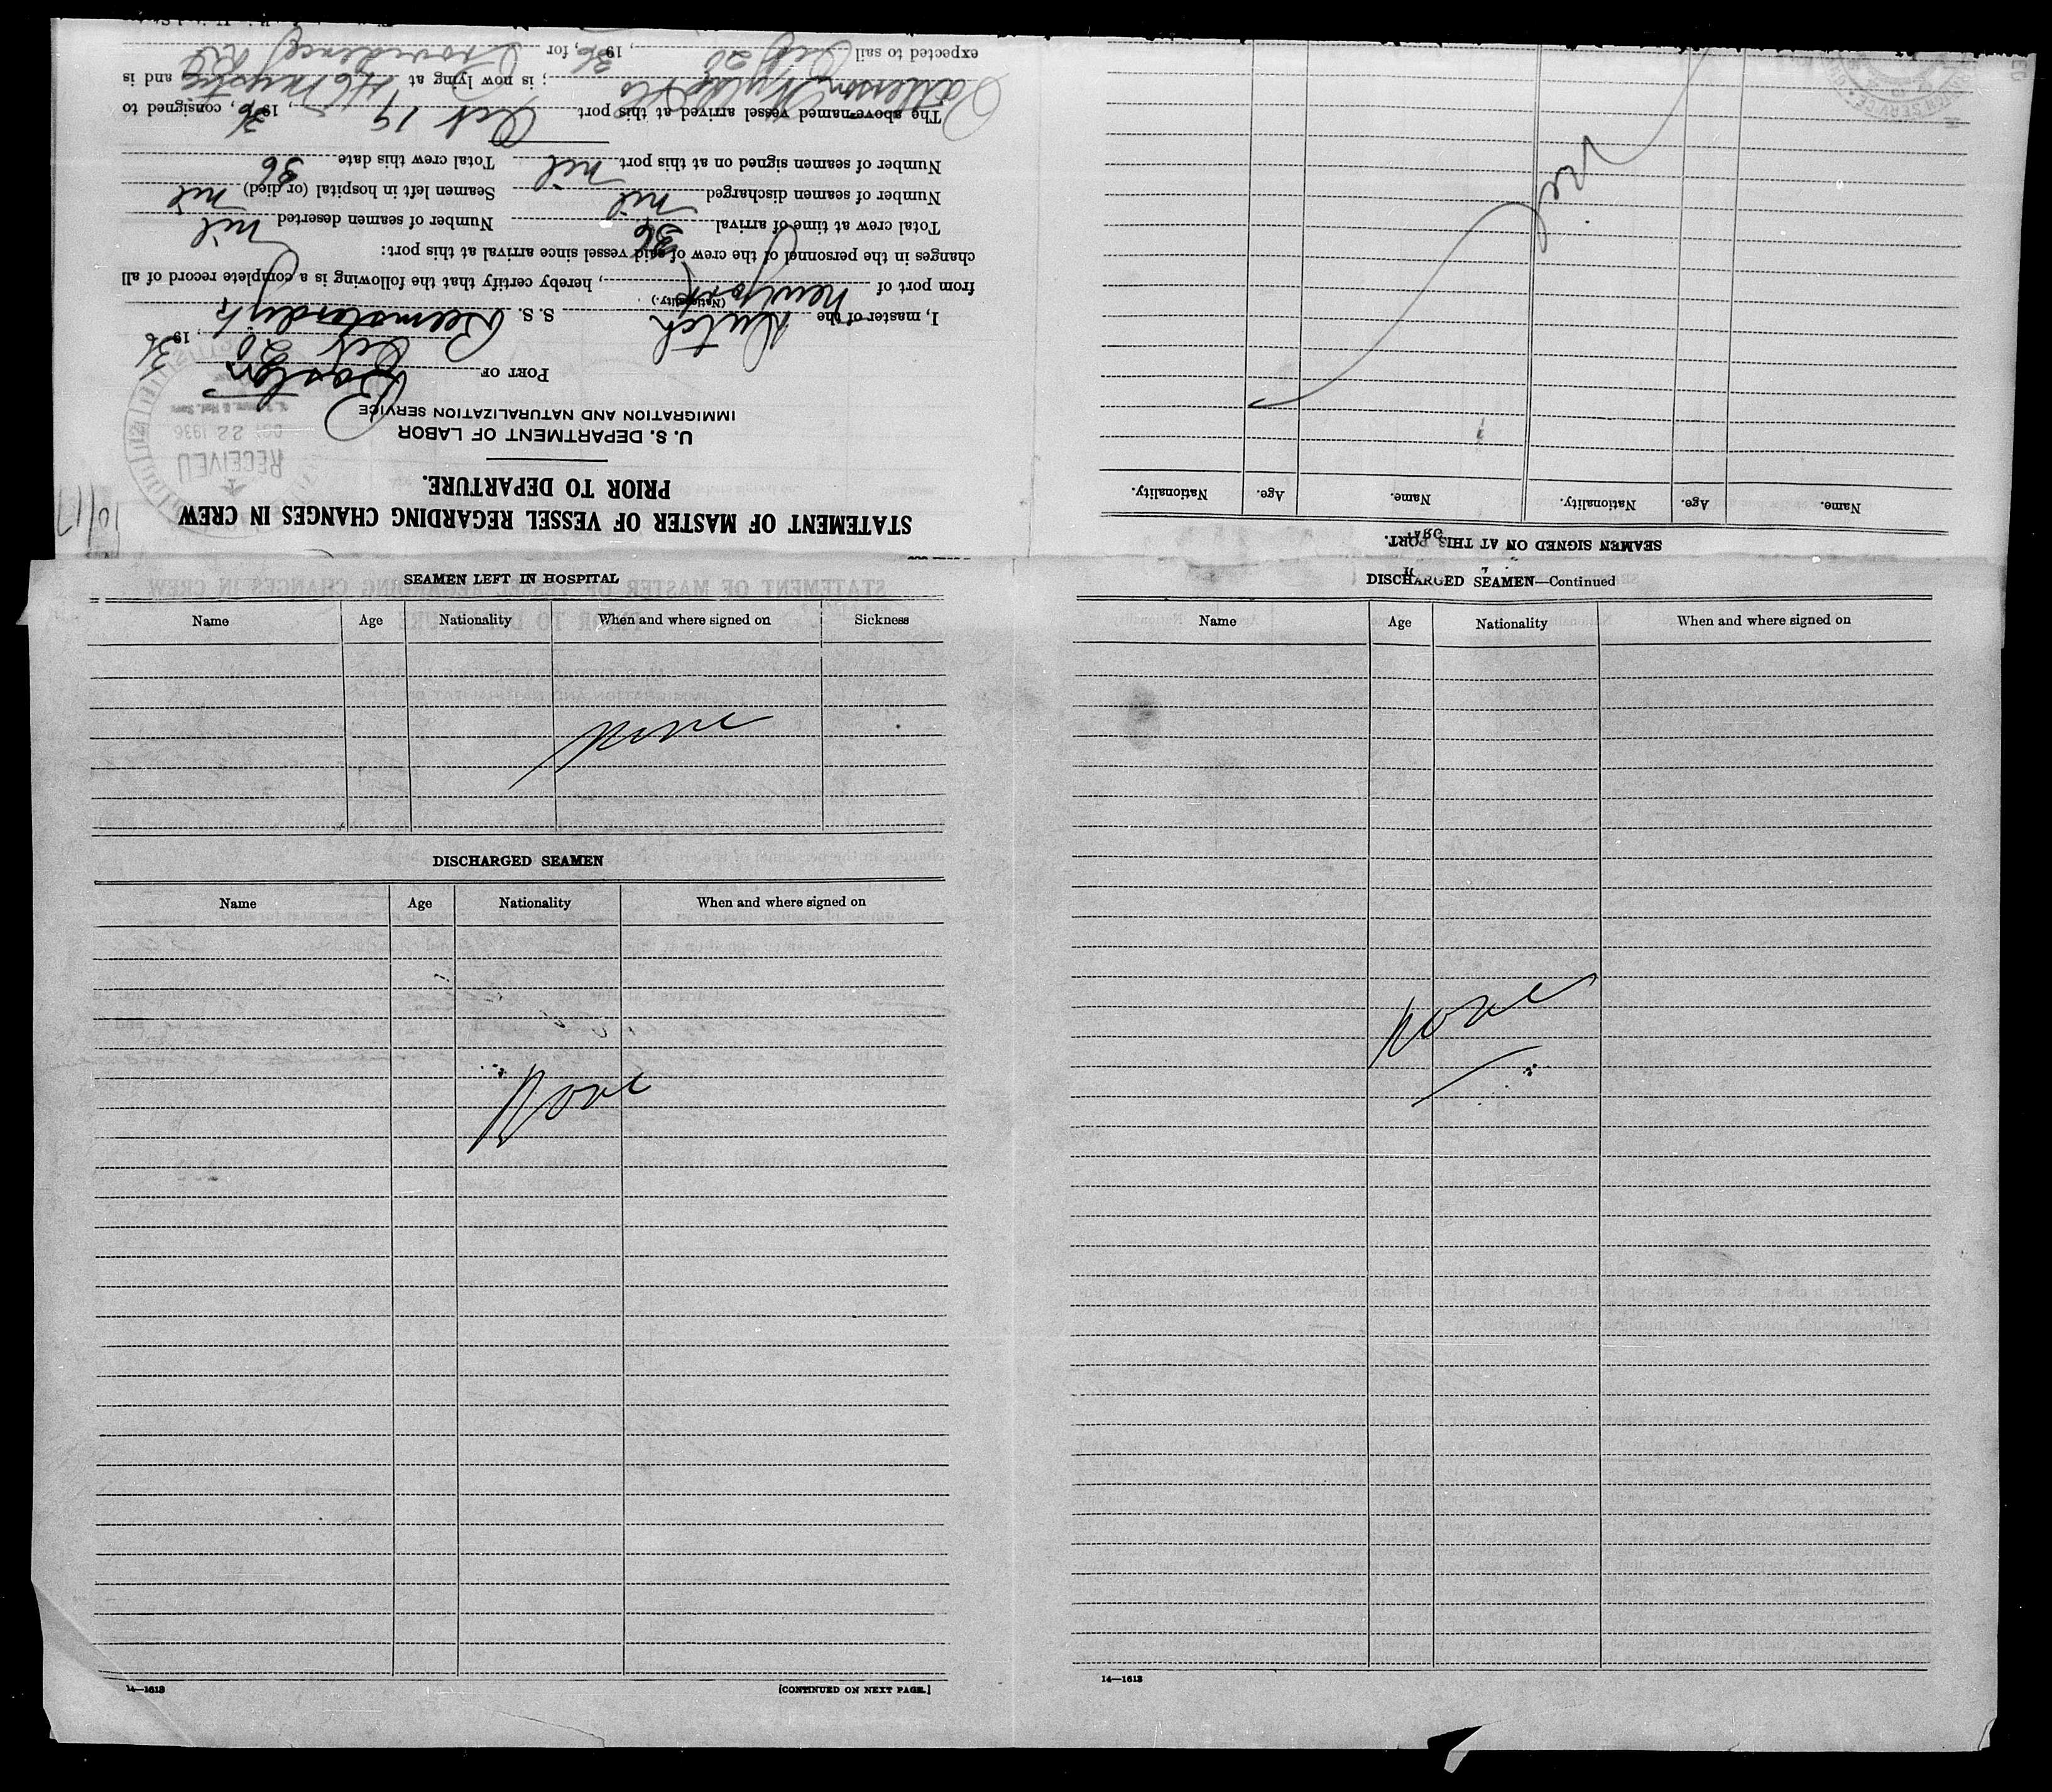 STATEMENT OF MASTER OF VESSEL REGARDING CHANGES IN CREW
PRIOR TO DEPARTURE.
U. S. DEPARTMENT OF LABOR
IMMIGRATION AND NATURALIZATION SERVICE
RECEIVED
OCT 22 1936
PORT OF Boston
Oct 20, 1936
I, master of the Dutch S. S. Beemsterdyk
(Nationality.)
from port of New York, hereby certify that the following is a complete record of all
changes in the personnel of the crew of said vessel since arrival at this port:
Total crew at time of arrival 36 Number of seamen deserted nil
Number of seamen discharged nil Seamen left in hospital (or died) nil
Number of seamen signed on at this port nil Total crew this date 36
The above-named vessel arrived at this port Oct 19, 1936, consigned to
Patterson Wylde & Co; is now lying at 46 Mystic and is
expected to sail Oct 20, 1936, for Providence RI
SEAMEN SIGNED ON AT THIS PORT.
Name. Age. Nationality. Name. Age. Nationality.
nil
SEAMEN LEFT IN HOSPITAL
Name Age Nationality When and where signed on Sickness
none
DISCHARGED SEAMEN
Name Age Nationality When and where signed on
None
14—1613
[CONTINUED ON NEXT PAGE.]
DISCHARGED SEAMEN—Continued
Name Age Nationality When and where signed on
None
14—1613